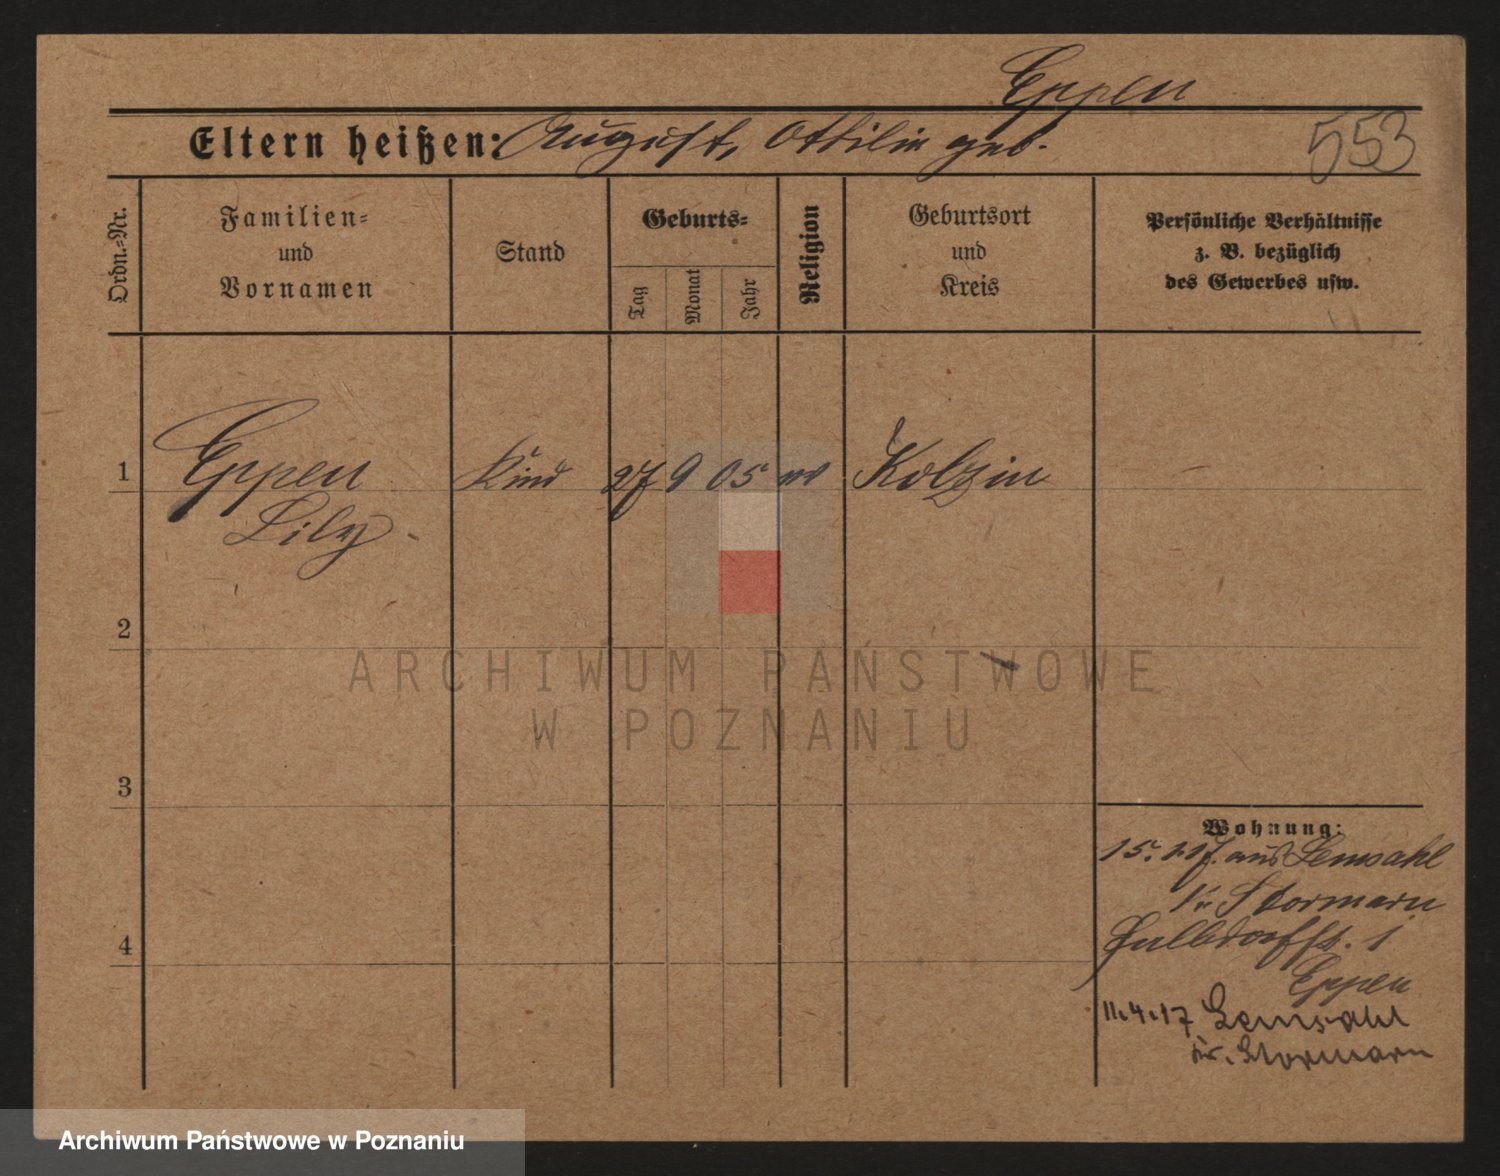 Eppen
Eltern heißen: August, Ottilie geb.
553
Ordn.-Nr.
Familien-
und
Vornamen
Stand
Geburts-
Tag
Monat
Jahr
Religion
Geburtsort
und
Kreis
Persönliche Verhältnisse
z. B. bezüglich
des Gewerbes usw.
1
Eppen
Lily
Kind
27 9 05
Kolzin
2
3
4
ARCHIWUM PAŃSTWOWE
W POZNANIU
Wohnung:
15. 1. 17. aus Lemsahl
Kr. Stormarn
1
Eppen
11.4.17 Lemsahl
Kr. Stormarn
Archiwum Państwowe w Poznaniu